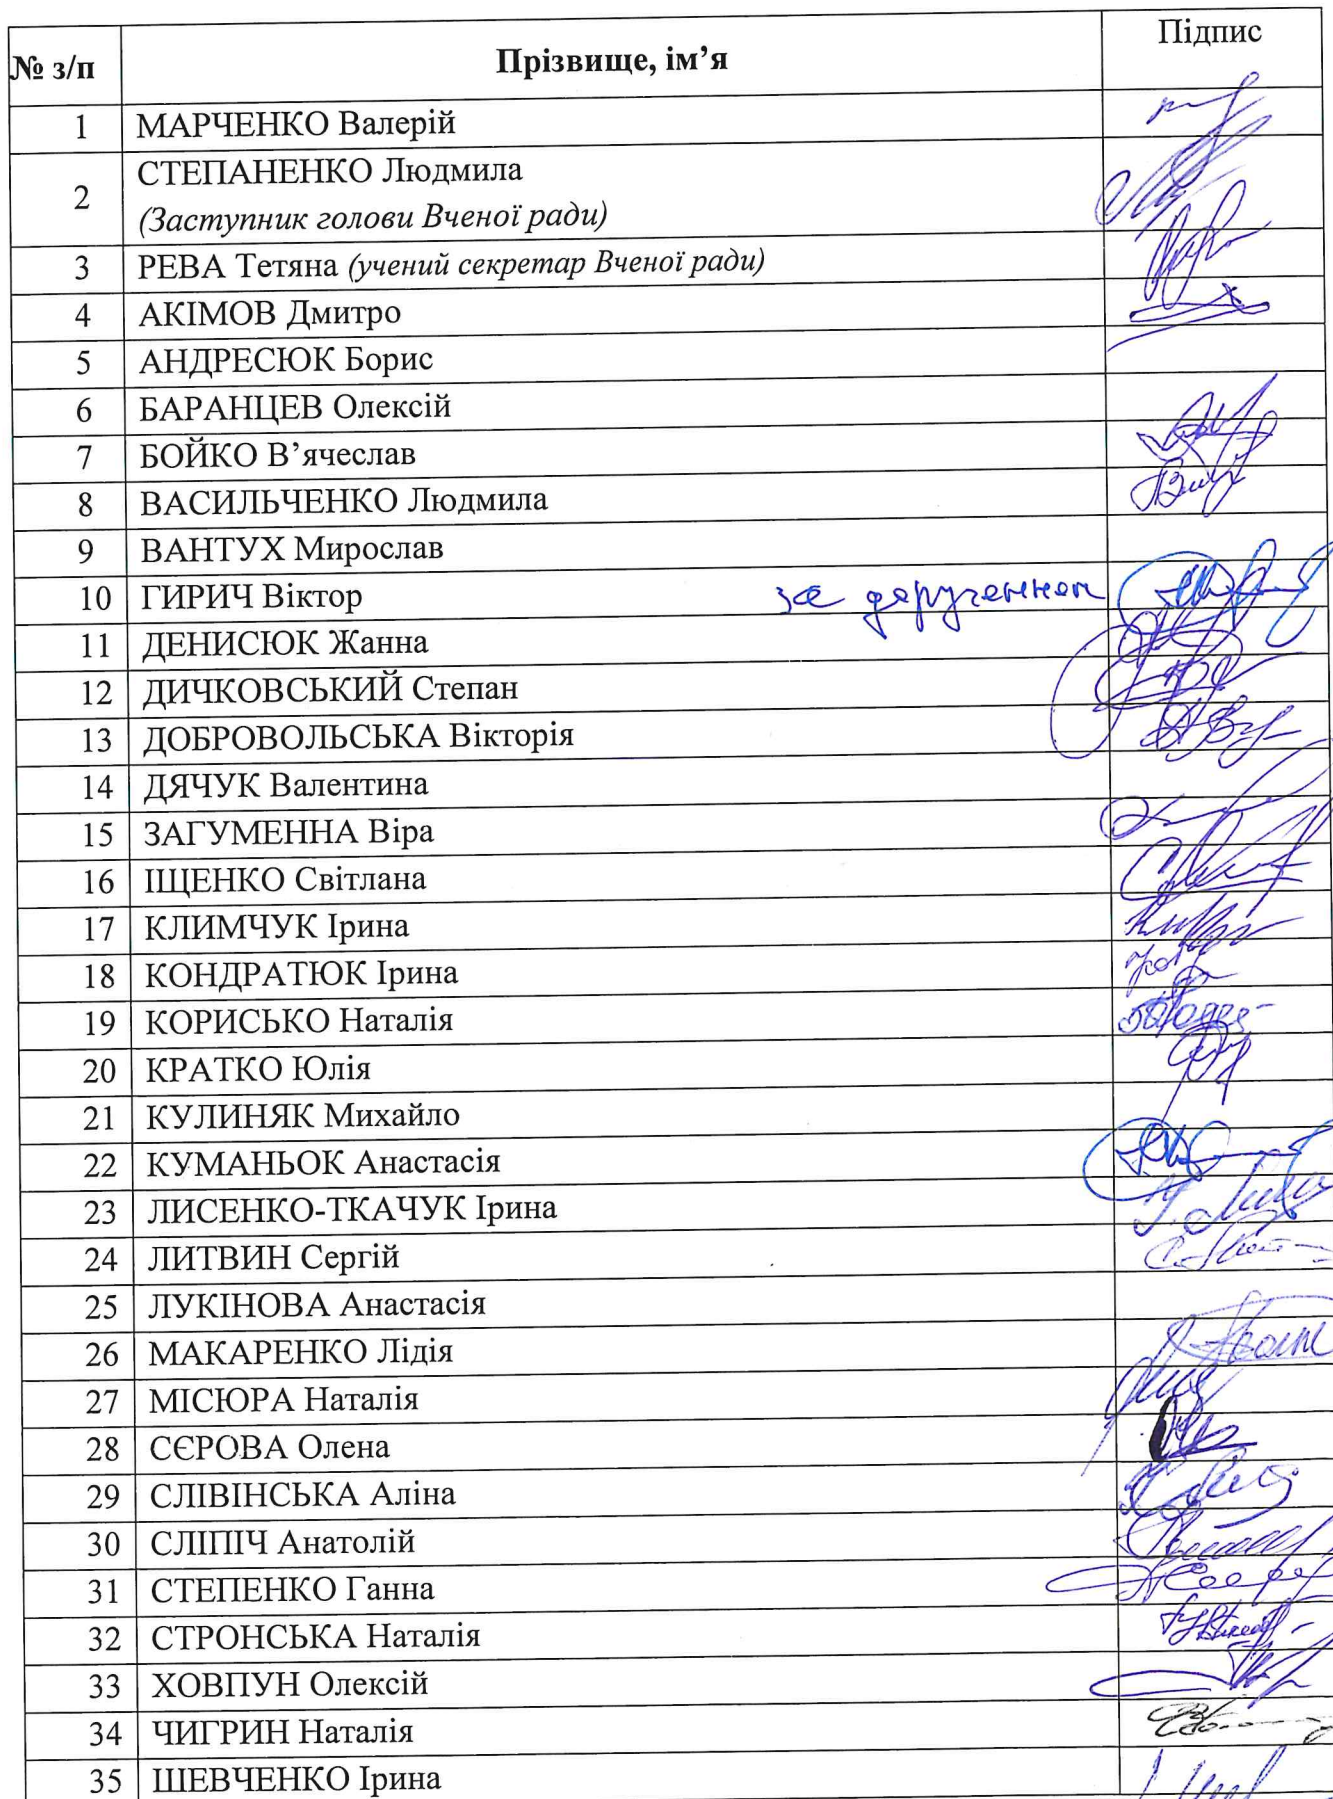 № з/п Прізвище, ім’я Підпис
1 МАРЧЕНКО Валерій
2 СТЕПАНЕНКО Людмила
(Заступник голови Вченої ради)
3 РЕВА Тетяна (учений секретар Вченої ради)
4 АКІМОВ Дмитро
5 АНДРЕСЮК Борис
6 БАРАНЦЕВ Олексій
7 БОЙКО В’ячеслав
8 ВАСИЛЬЧЕНКО Людмила
9 ВАНТУХ Мирослав
10 ГИРИЧ Віктор за дорученням
11 ДЕНИСЮК Жанна
12 ДИЧКОВСЬКИЙ Степан
13 ДОБРОВОЛЬСЬКА Вікторія
14 ДЯЧУК Валентина
15 ЗАГУМЕННА Віра
16 ІЩЕНКО Світлана
17 КЛИМЧУК Ірина
18 КОНДРАТЮК Ірина
19 КОРИСЬКО Наталія
20 КРАТКО Юлія
21 КУЛИНЯК Михайло
22 КУМАНЬОК Анастасія
23 ЛИСЕНКО-ТКАЧУК Ірина
24 ЛИТВИН Сергій
25 ЛУКІНОВА Анастасія
26 МАКАРЕНКО Лідія
27 МІСЮРА Наталія
28 СЄРОВА Олена
29 СЛІВІНСЬКА Аліна
30 СЛІПІЧ Анатолій
31 СТЕПЕНКО Ганна
32 СТРОНСЬКА Наталія
33 ХОВПУН Олексій
34 ЧИГРИН Наталія
35 ШЕВЧЕНКО Ірина